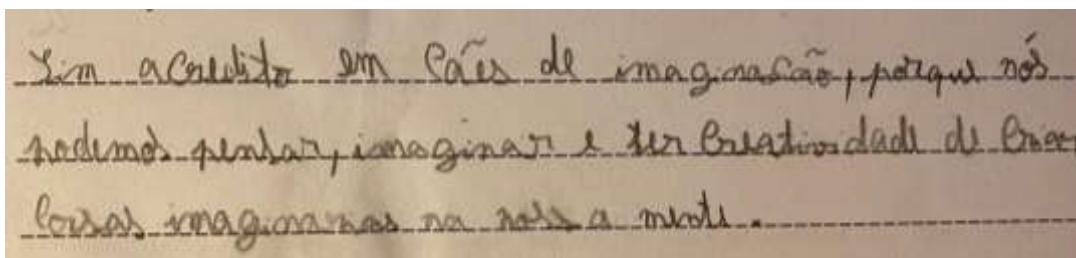 Sim acredito em Cães de imaginacão, porque nós
podemos pensar, imaginar e ter Creatividade de Criar
Coisas imaginarias na nossa mente.